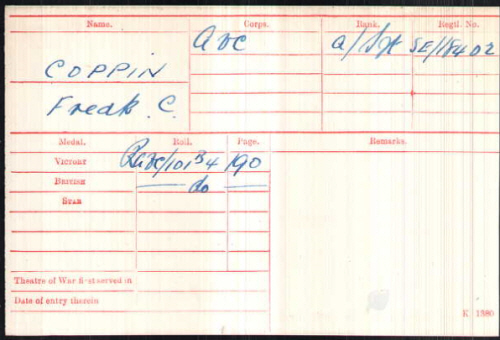 Name. Corps. Rank. Regtl. No.
COPPIN AVC a/Sgt SE/18402
Fredk. C.
Medal. Roll. Page. Remarks.
VICTORY RAVC/101B4 190
BRITISH — do —
STAR
Theatre of War first served in
Date of entry therein
K 1380